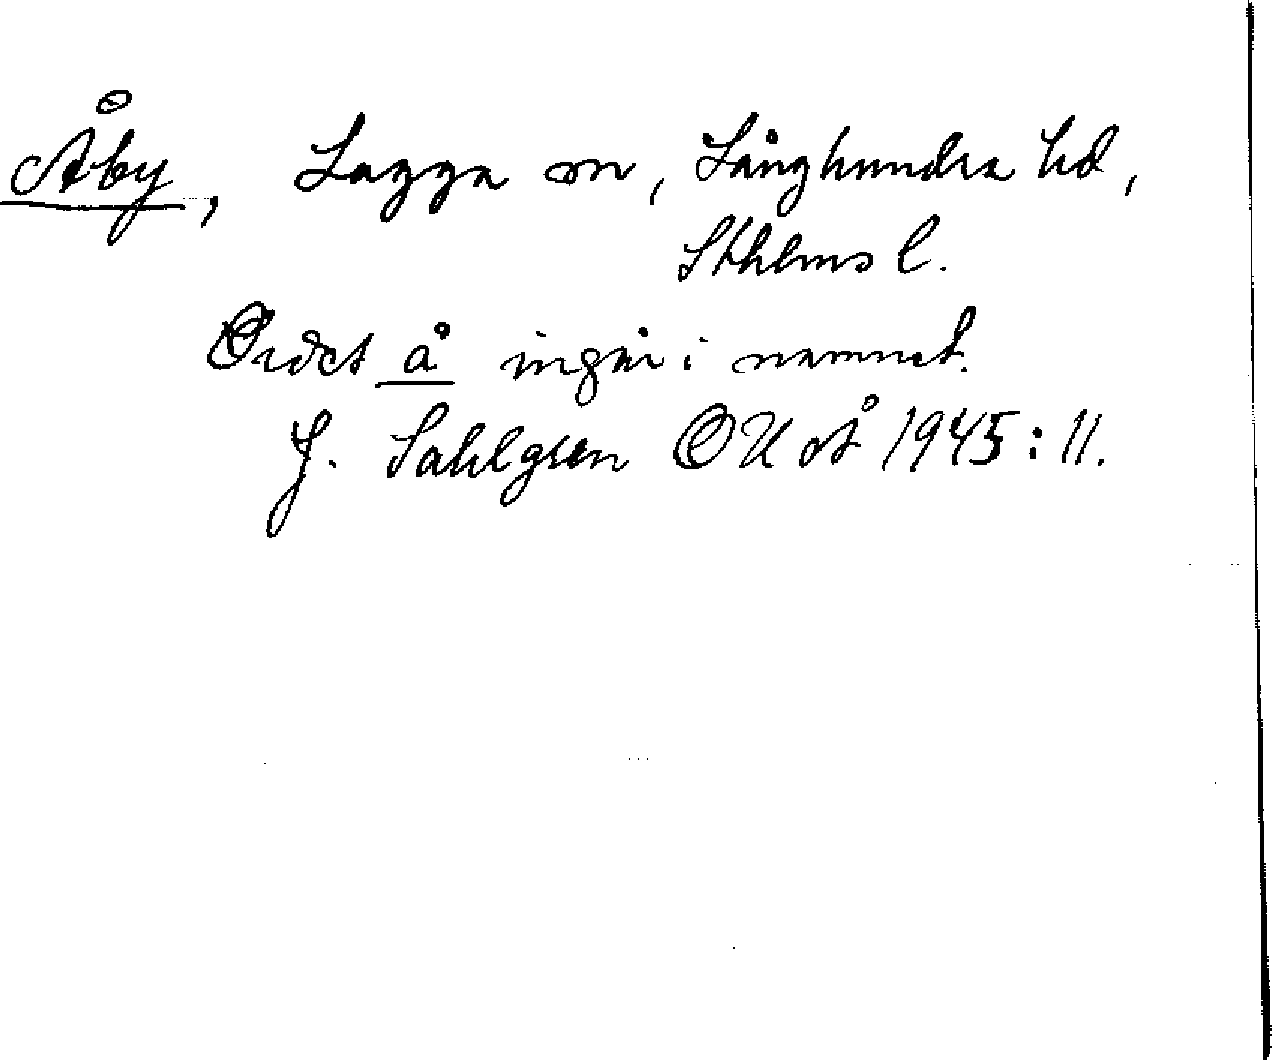 Åby, Lagga sn, Långhundra hd,
Sthlms l.
Ordet å ingår i namnet.
J. Sahlgren OUÅ 1945:11.